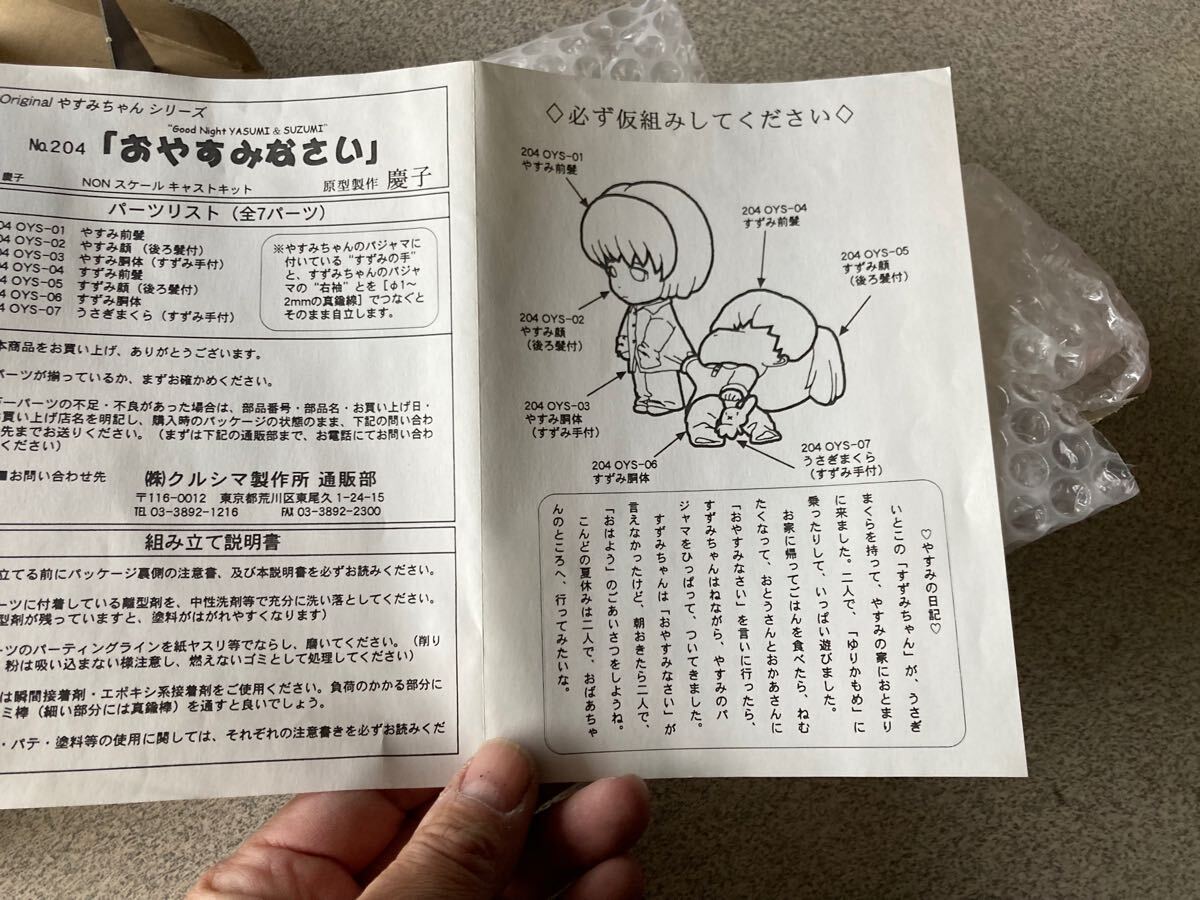 Original やすみちゃん シリーズ
"Good Night YASUMI & SUZUMI"
No.204 「おやすみなさい」
慶子 NON スケール キャストキット 原型製作 慶子
パーツリスト（全7パーツ）
04 OYS-01 やすみ前髪
04 OYS-02 やすみ顔（後ろ髪付）
04 OYS-03 やすみ胴体（すずみ手付）
04 OYS-04 すずみ前髪
04 OYS-05 すずみ顔（後ろ髪付）
04 OYS-06 すずみ胴体
04 OYS-07 うさぎまくら（すずみ手付）
※やすみちゃんのパジャマに
付いている“すずみの手”
と、すずみちゃんのパジャ
マの“右袖”とを［φ1～
2mmの真鍮線］でつなぐと
そのまま自立します。
本商品をお買い上げ、ありがとうございます。
パーツが揃っているか、まずお確かめください。
一パーツの不足・不良があった場合は、部品番号・部品名・お買い上げ日・
買い上げ店名を明記し、購入時のパッケージの状態のまま、下記の問い合わ
先までお送りください。（まずは下記の通販部まで、お電話にてお問い合わ
ください）
■お問い合わせ先 ㈱クルシマ製作所 通販部
〒116-0012 東京都荒川区東尾久 1-24-15
TEL 03-3892-1216 FAX 03-3892-2300
組み立て説明書
立てる前にパッケージ裏側の注意書、及び本説明書を必ずお読みください。
ーツに付着している離型剤を、中性洗剤等で充分に洗い落としてください。
型剤が残っていますと、塗料がはがれやすくなります）
ーツのパーティングラインを紙ヤスリ等でならし、磨いてください。（削り
粉は吸い込まない様注意し、燃えないゴミとして処理してください）
は瞬間接着剤・エポキシ系接着剤をご使用ください。負荷のかかる部分に
ミ棒（細い部分には真鍮棒）を通すと良いでしょう。
・パテ・塗料等の使用に関しては、それぞれの注意書きを必ずお読みくだ
◇必ず仮組みしてください◇
204 OYS-01
やすみ前髪
204 OYS-04
すずみ前髪
204 OYS-05
すずみ顔
（後ろ髪付）
204 OYS-02
やすみ顔
（後ろ髪付）
204 OYS-03
やすみ胴体
（すずみ手付）
204 OYS-06
すずみ胴体
204 OYS-07
うさぎまくら
（すずみ手付）
♡やすみの日記♡
いとこの「すずみちゃん」が、うさぎ
まくらを持って、やすみの家におとまり
に来ました。二人で、「ゆりかもめ」に
乗ったりして、いっぱい遊びました。
お家に帰ってごはんを食べたら、ねむ
たくなって、おとうさんとおかあさんに
「おやすみなさい」を言いに行ったら、
すずみちゃんはねながら、やすみのパ
ジャマをひっぱって、ついてきました。
すずみちゃんは「おやすみなさい」が
言えなかったけど、朝おきたら二人で、
「おはよう」のごあいさつをしようね。
こんどの夏休みは二人で、おばあちゃ
んのところへ、行ってみたいな。